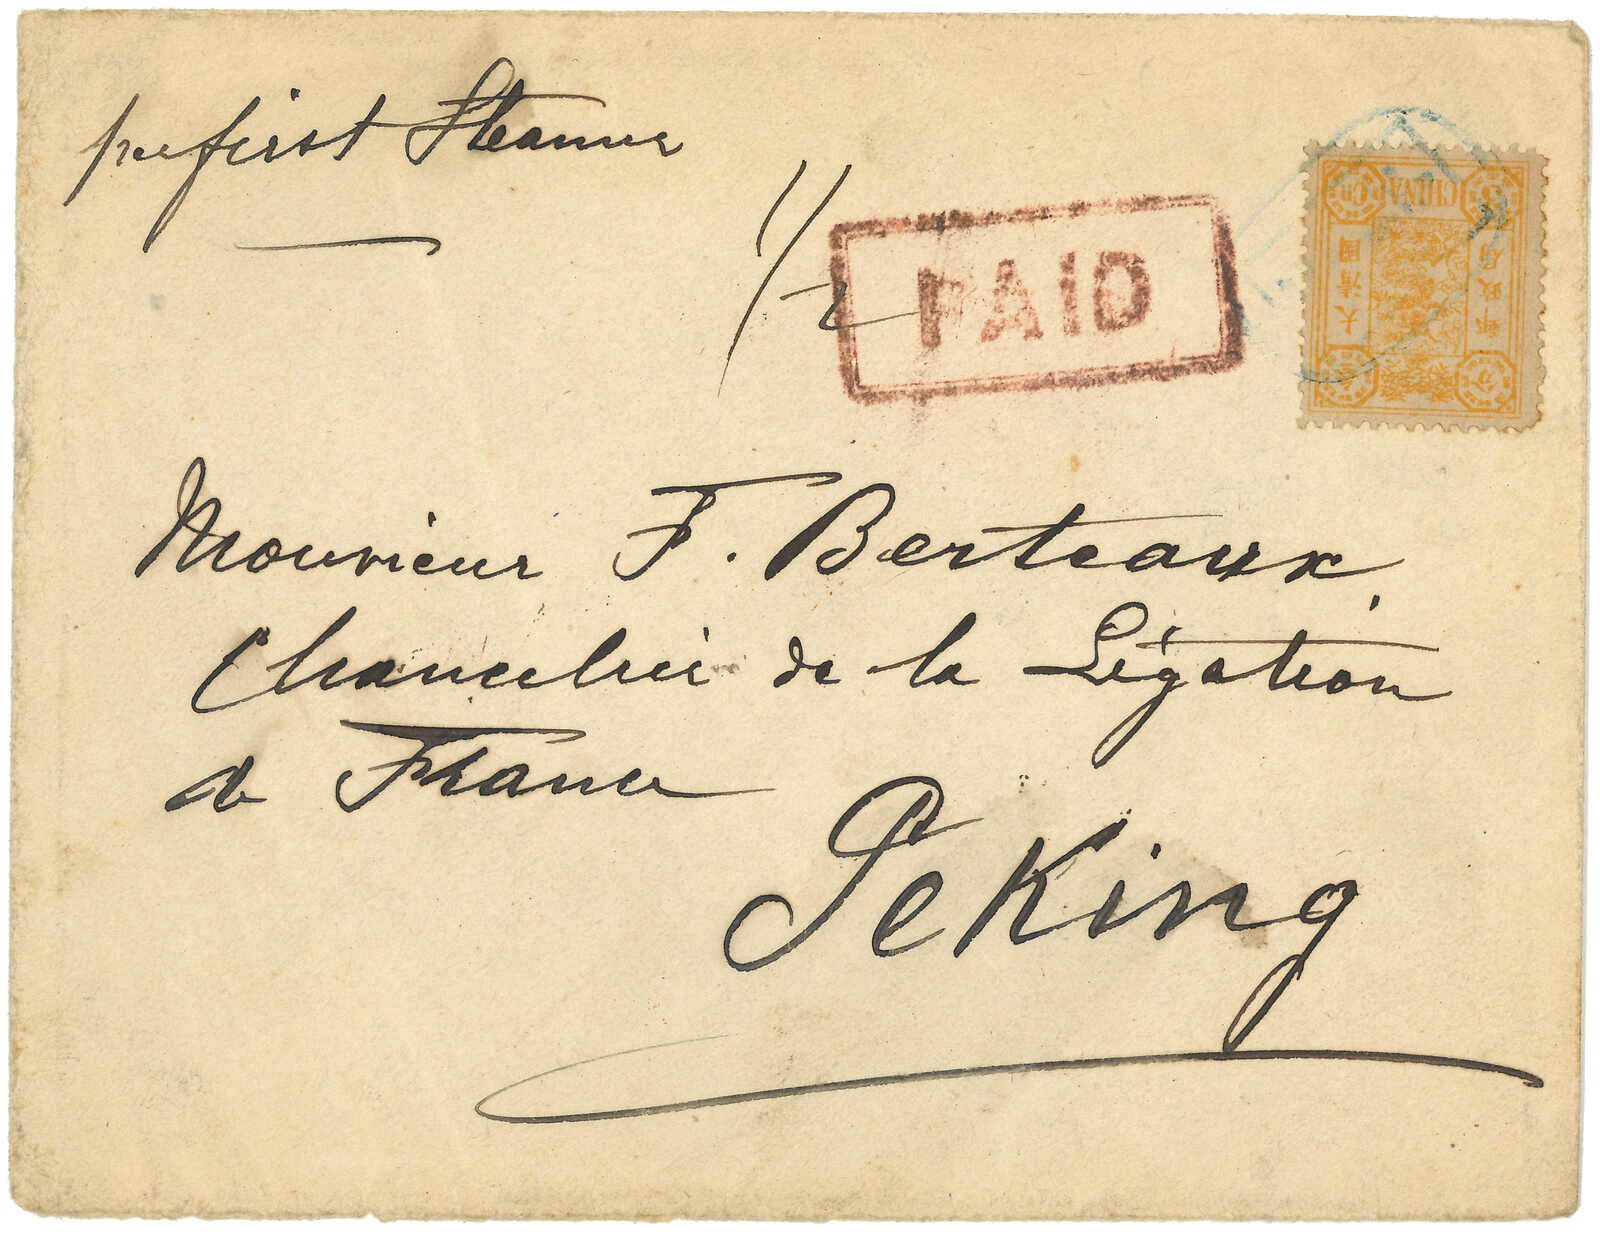 per first Steamer
1/2
PAID
CHINA
大清國
郵政局
Monsieur F. Berteaux
Chancelier de la Légation
de France
Peking